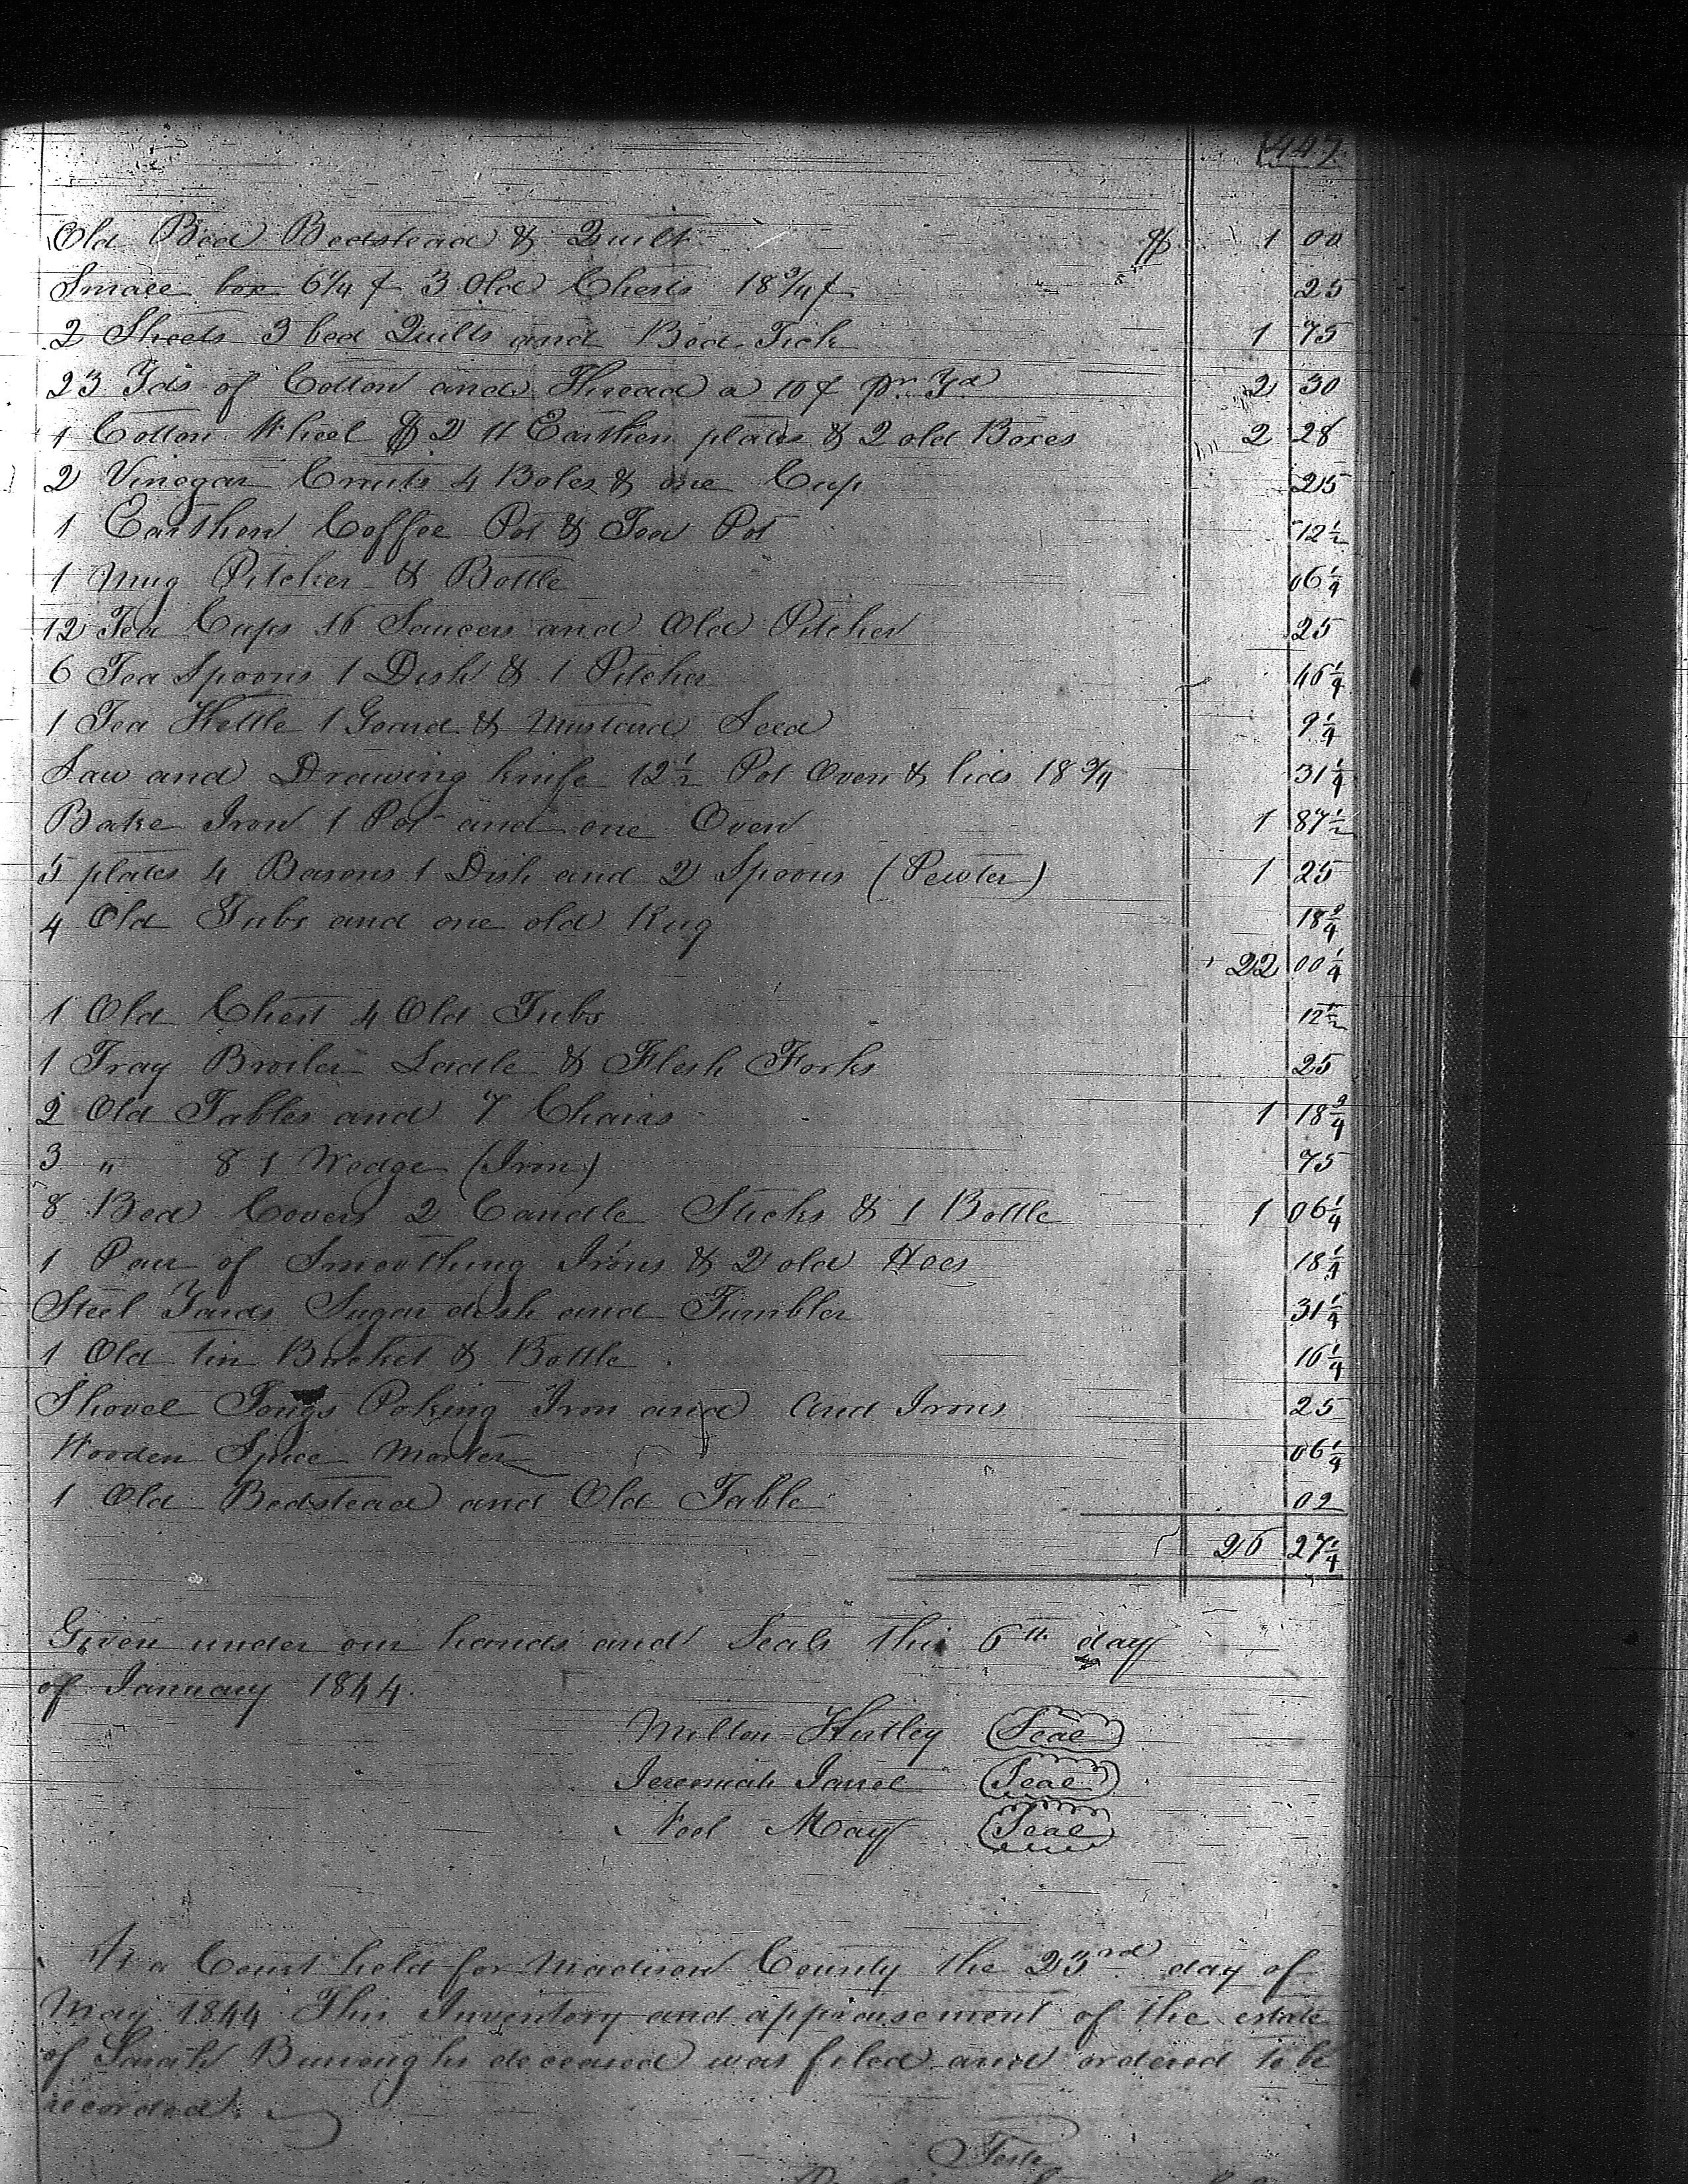 (447
Old Bed Bedstead & Quilt $ 1 00
Small box 6 1/4 ¢ 3 Old Chests 18 3/4 ¢ 25
2 Sheets 3 bed Quilts and Bed Tick 1 75
23 Yds of Cotton and Thread a 10 ¢ pr. Yd 2 30
1 Cotton Wheel $2 11 Earthen plates & 2 old Boxes 2 28
2 Vinegar Cruits 4 Boles & one Cup 25
1 Earthen Coffee Pot & Tea Pot 12 1/2
1 Mug Pitcher & Bottle 06 1/4
12 Tea Cups 16 Saucers and Old Pitcher 25
6 Tea Spoons 1 Dish & 1 Pitcher 46 1/4
1 Tea Kettle 1 Goard & Mustard Seed 9 1/4
Saw and Drawing knife 12 1/2 Pot Oven & lids 18 3/4 31 1/4
Bake Iron 1 Pot and one Oven 1 87 1/2
5 plates 4 Basons 1 Dish and 2 Spoons (Pewter) 1 25
4 Old Tubs and one old Rug 18 3/4
22 00 1/4
1 Old Chest 4 Old Tubs 12 1/2
1 Tray Broiler Ladle & Flesh Forks 25
2 Old Tables and 7 Chairs 1 18 3/4
3 " & 1 Wedge (Iron) 75
8 Bed Covers 2 Candle Sticks & 1 Bottle 1 06 1/4
1 Pair of Smoothing Irons & 2 old Hoes 18 1/4
Steel Yards Sugar dish and Tumbler 31 1/4
1 Old tin Bucket & Bottle 16 1/4
Shovel Tongs Poking Iron and And Irons 25
Wooden Spice Morter 06 1/4
1 Old Bedstead and Old Table 02
26 27 1/4
Given under our hands and Seals this 6th day
of January 1844.
Milton Hutley (Seal)
Jeremiah Jarrel (Seal)
Noel May (Seal)
At a Court held for Madison County the 23rd day of
May 1844 This Inventory and appraisement of the estate
of Sarah Burroughs deceased was filed and ordered to be
recorded.
Teste